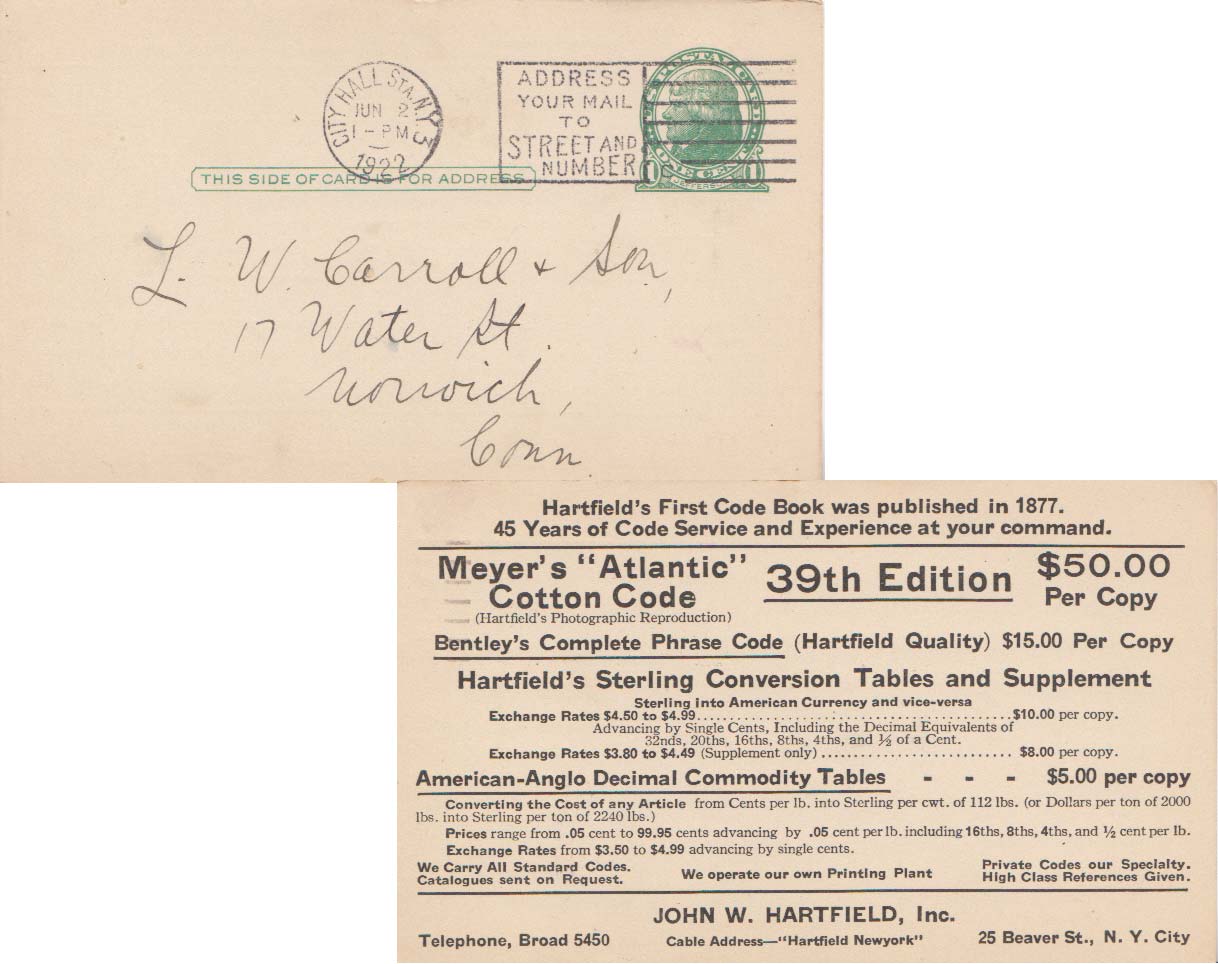 CITY HALL STA. N.Y. 3
JUN 2
1 - PM
1922
ADDRESS
YOUR MAIL
TO
STREET AND
NUMBER
U.S. POSTAL CARD
ONE CENT
1 1
JEFFERSON
THIS SIDE OF CARD IS FOR ADDRESS
L. W. Carroll & Son,
17 Water St.
Norwich,
Conn.
Hartfield's First Code Book was published in 1877.
45 Years of Code Service and Experience at your command.
Meyer's "Atlantic" Cotton Code
(Hartfield's Photographic Reproduction)
39th Edition
$50.00
Per Copy
Bentley's Complete Phrase Code (Hartfield Quality) $15.00 Per Copy
Hartfield's Sterling Conversion Tables and Supplement
Sterling into American Currency and vice-versa
Exchange Rates $4.50 to $4.99........................................$10.00 per copy.
Advancing by Single Cents, Including the Decimal Equivalents of
32nds, 20ths, 16ths, 8ths, 4ths, and ½ of a Cent.
Exchange Rates $3.80 to $4.49 (Supplement only) ........................... $8.00 per copy.
American-Anglo Decimal Commodity Tables - - - $5.00 per copy
Converting the Cost of any Article from Cents per lb. into Sterling per cwt. of 112 lbs. (or Dollars per ton of 2000
lbs. into Sterling per ton of 2240 lbs.)
Prices range from .05 cent to 99.95 cents advancing by .05 cent per lb. including 16ths, 8ths, 4ths, and ½ cent per lb.
Exchange Rates from $3.50 to $4.99 advancing by single cents.
We Carry All Standard Codes.
Catalogues sent on Request.
We operate our own Printing Plant
Private Codes our Specialty.
High Class References Given.
JOHN W. HARTFIELD, Inc.
Telephone, Broad 5450
Cable Address—"Hartfield Newyork"
25 Beaver St., N. Y. City